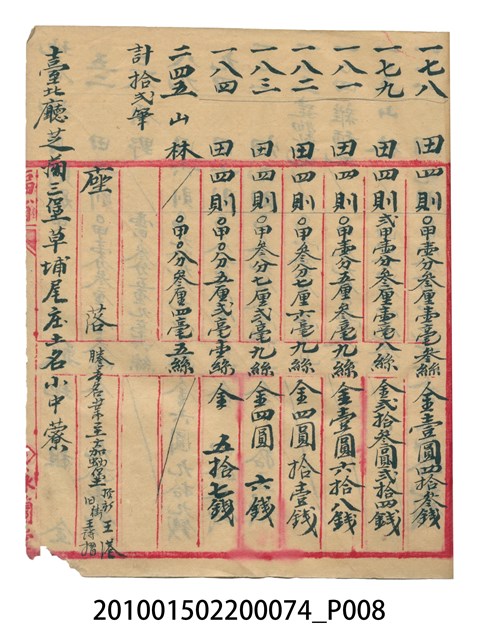 一七八 田四則 〇甲壹分叁厘壹毫叁絲 金壹圓四拾叁錢
一七九 田四則 弍甲壹分叁厘壹毫八絲 金弍拾叁圓弍拾四錢
一八一 田四則 〇甲壹分五厘叁毫九絲 金壹圓六拾八錢
一八二 田四則 〇甲叁分七厘六毫九絲 金四圓拾壹錢
一八三 田四則 〇甲叁分七厘弍毫九絲 金四圓六錢
一八四 田四則 〇甲〇分五厘弍毫壹絲 金五拾七錢
二四五 山林 〇甲〇分叁厘四毫五絲
計拾弍筆
座落
臺北廳芝蘭三堡草埔尾庄土名小中藔
201001502200074_P008